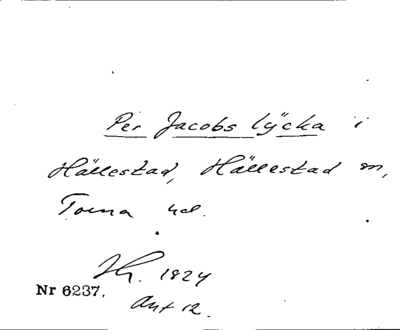 Per Jacobs lÿcka i
Hällestad, Hällestad sn,
Torna hd.
1824
Nr 6237.
Akt 12.